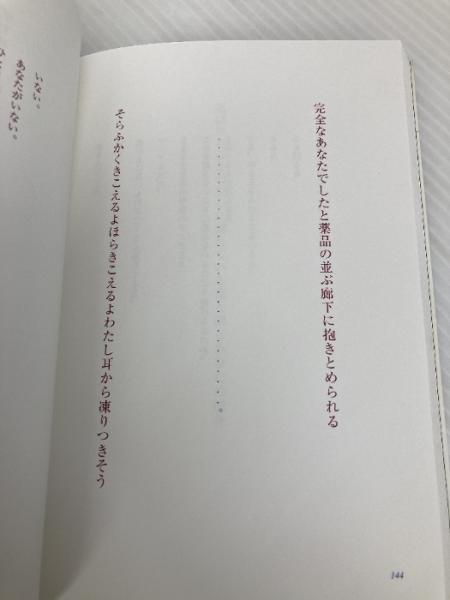 完全なあなたでしたと薬品の並ぶ廊下に抱きとめられる
そらふかくきこえるよほらきこえるよわたし耳から凍りつきそう
144
いない。
あなたがいない。